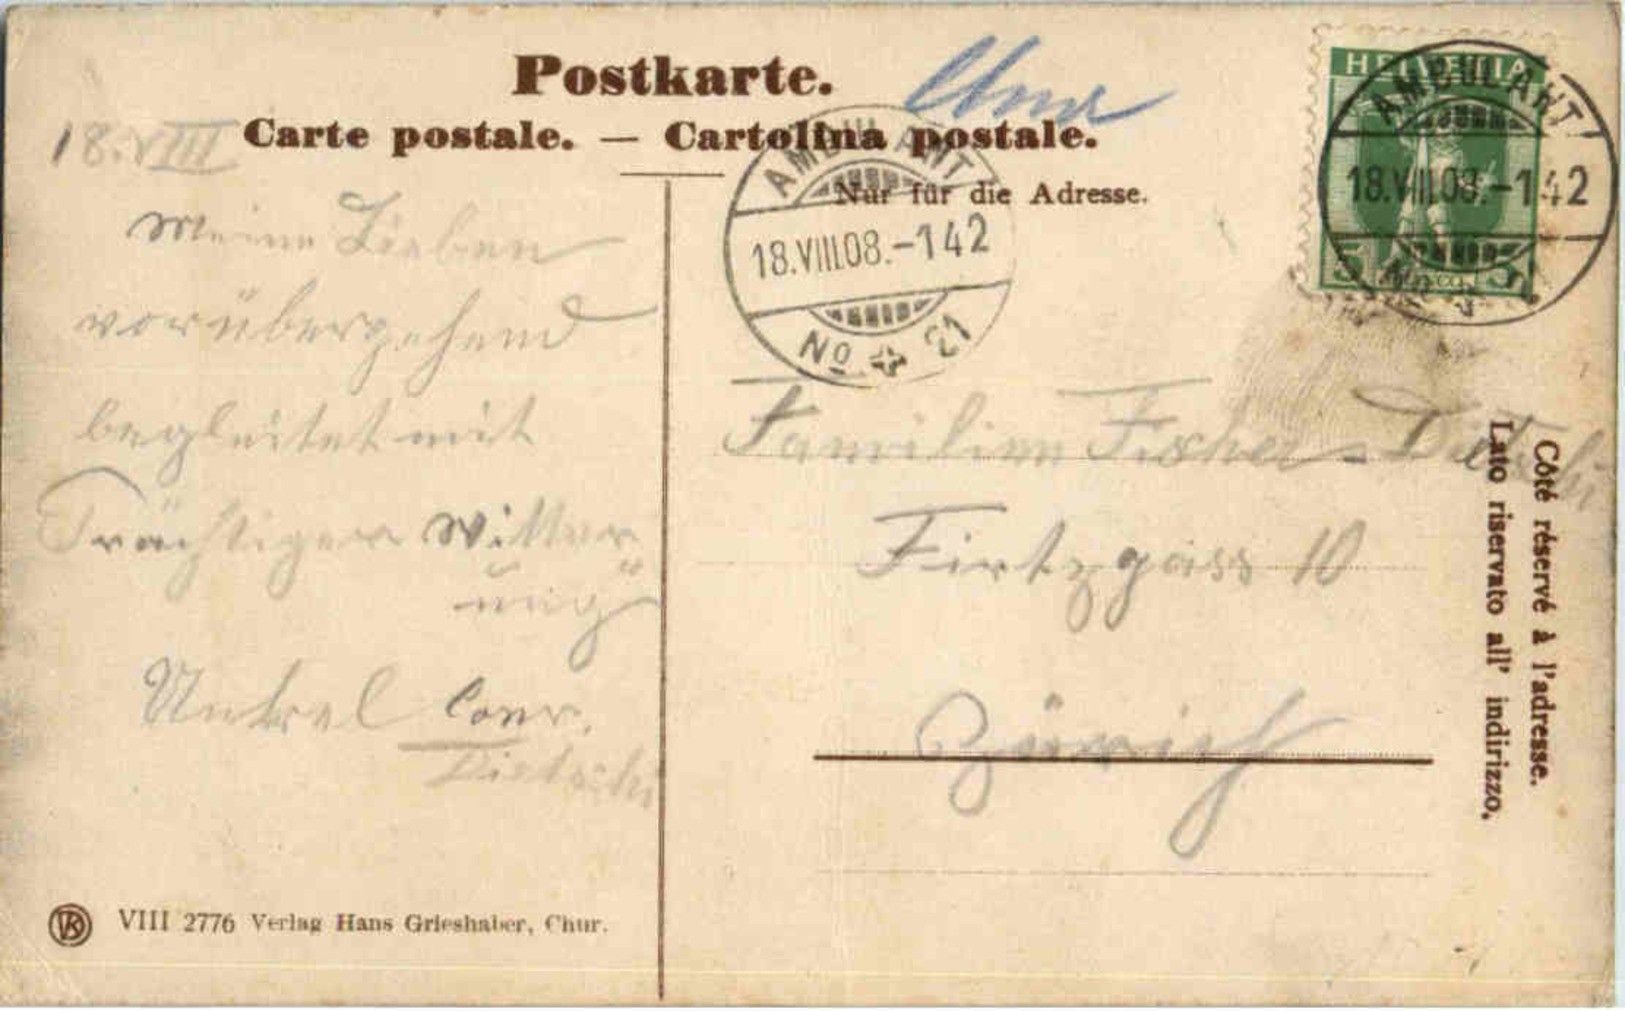 Postkarte.
Carte postale. — Cartolina postale.
Nur für die Adresse.
Chur
HELVETIA
5
AMBULANT
18.VIII.08.-142
No 21
AMBULANT
18.VIII.08.-142
No 21
18. VIII
Meine Lieben
vorübergehend
begleitet mit
Prächtiger Witter
ung
Unkel Conr.
Dietschi
Familien Fischer - Dietschi
Firtzgass 10
Zürich
Côté réservé à l'adresse.
Lato riservato all' indirizzo.
VIII 2776 Verlag Hans Grieshaber, Chur.